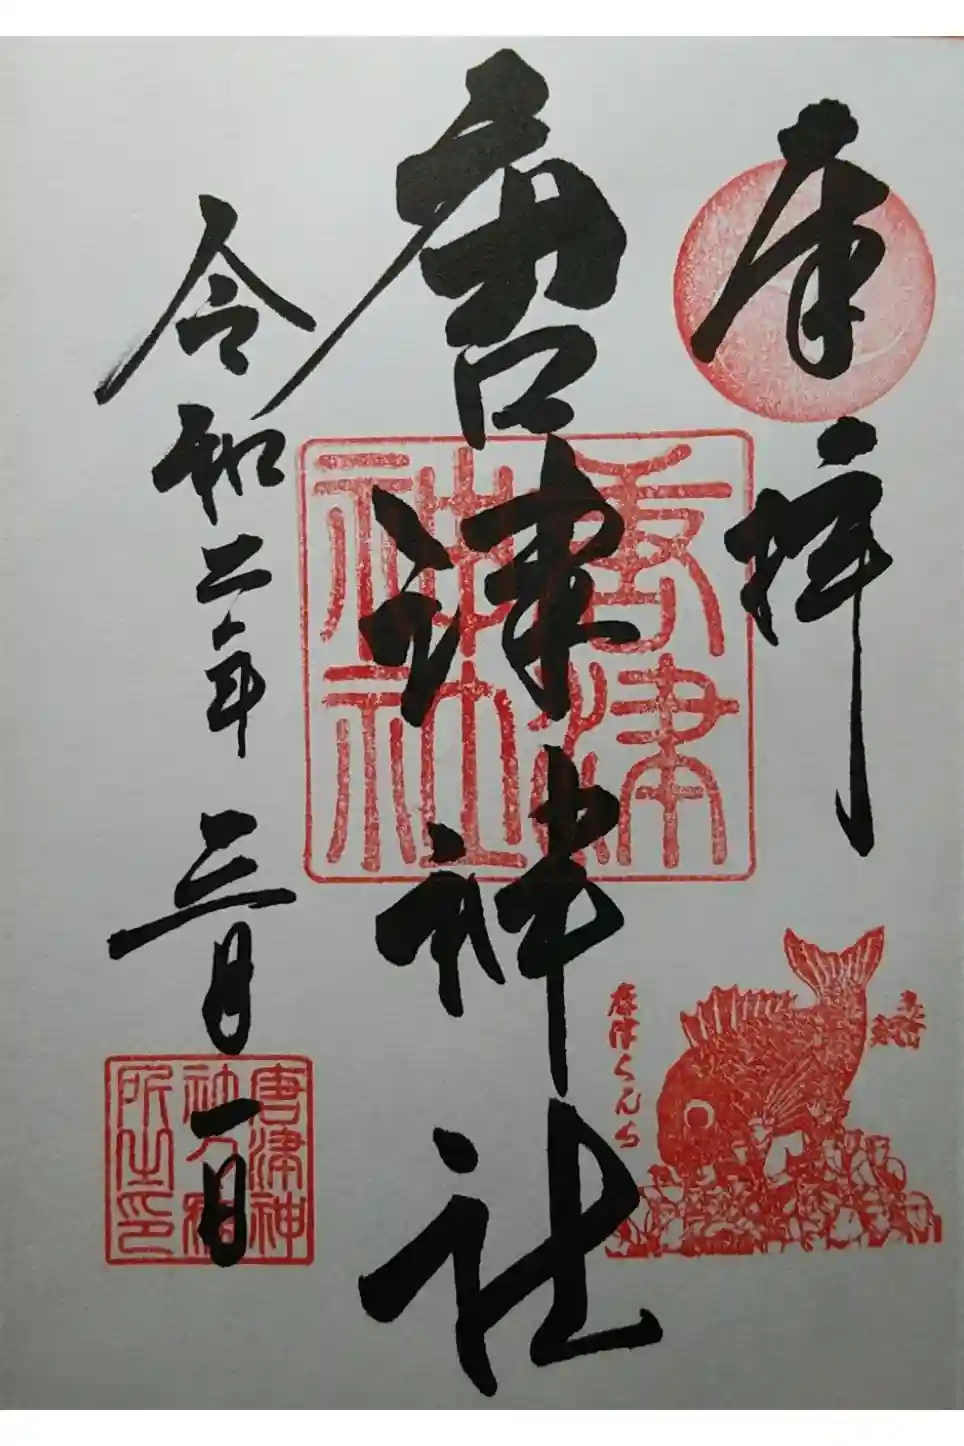 奉拝
唐津神社
令和二年三月一日
唐津神社
唐津くんち
唐津神
社々務
所之印